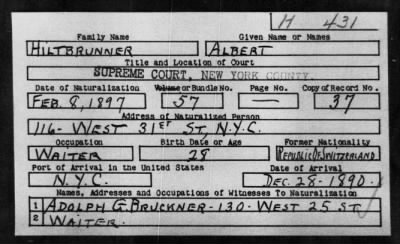 H 431
Family Name Given Name or Names
HILTBRUNNER ALBERT
Title and Location of Court
SUPREME COURT, NEW YORK COUNTY.
Date of Naturalization Volume or Bundle No. Page No. Copy of Record No.
FEB. 8, 1897 57 — 37
Address of Naturalized Person
116- WEST 31ST ST, N.Y.C.
Occupation Birth Date or Age Former Nationality
WAITER 28 REPUBLIC OF SWITZERLAND
Port of Arrival in the United States Date of Arrival
N.Y.C. DEC. 28-1890.
Names, Addresses and Occupations of Witnesses To Naturalization
1 ADOLPH G. BRUCKNER-130-WEST 25 ST
2 WAITER.